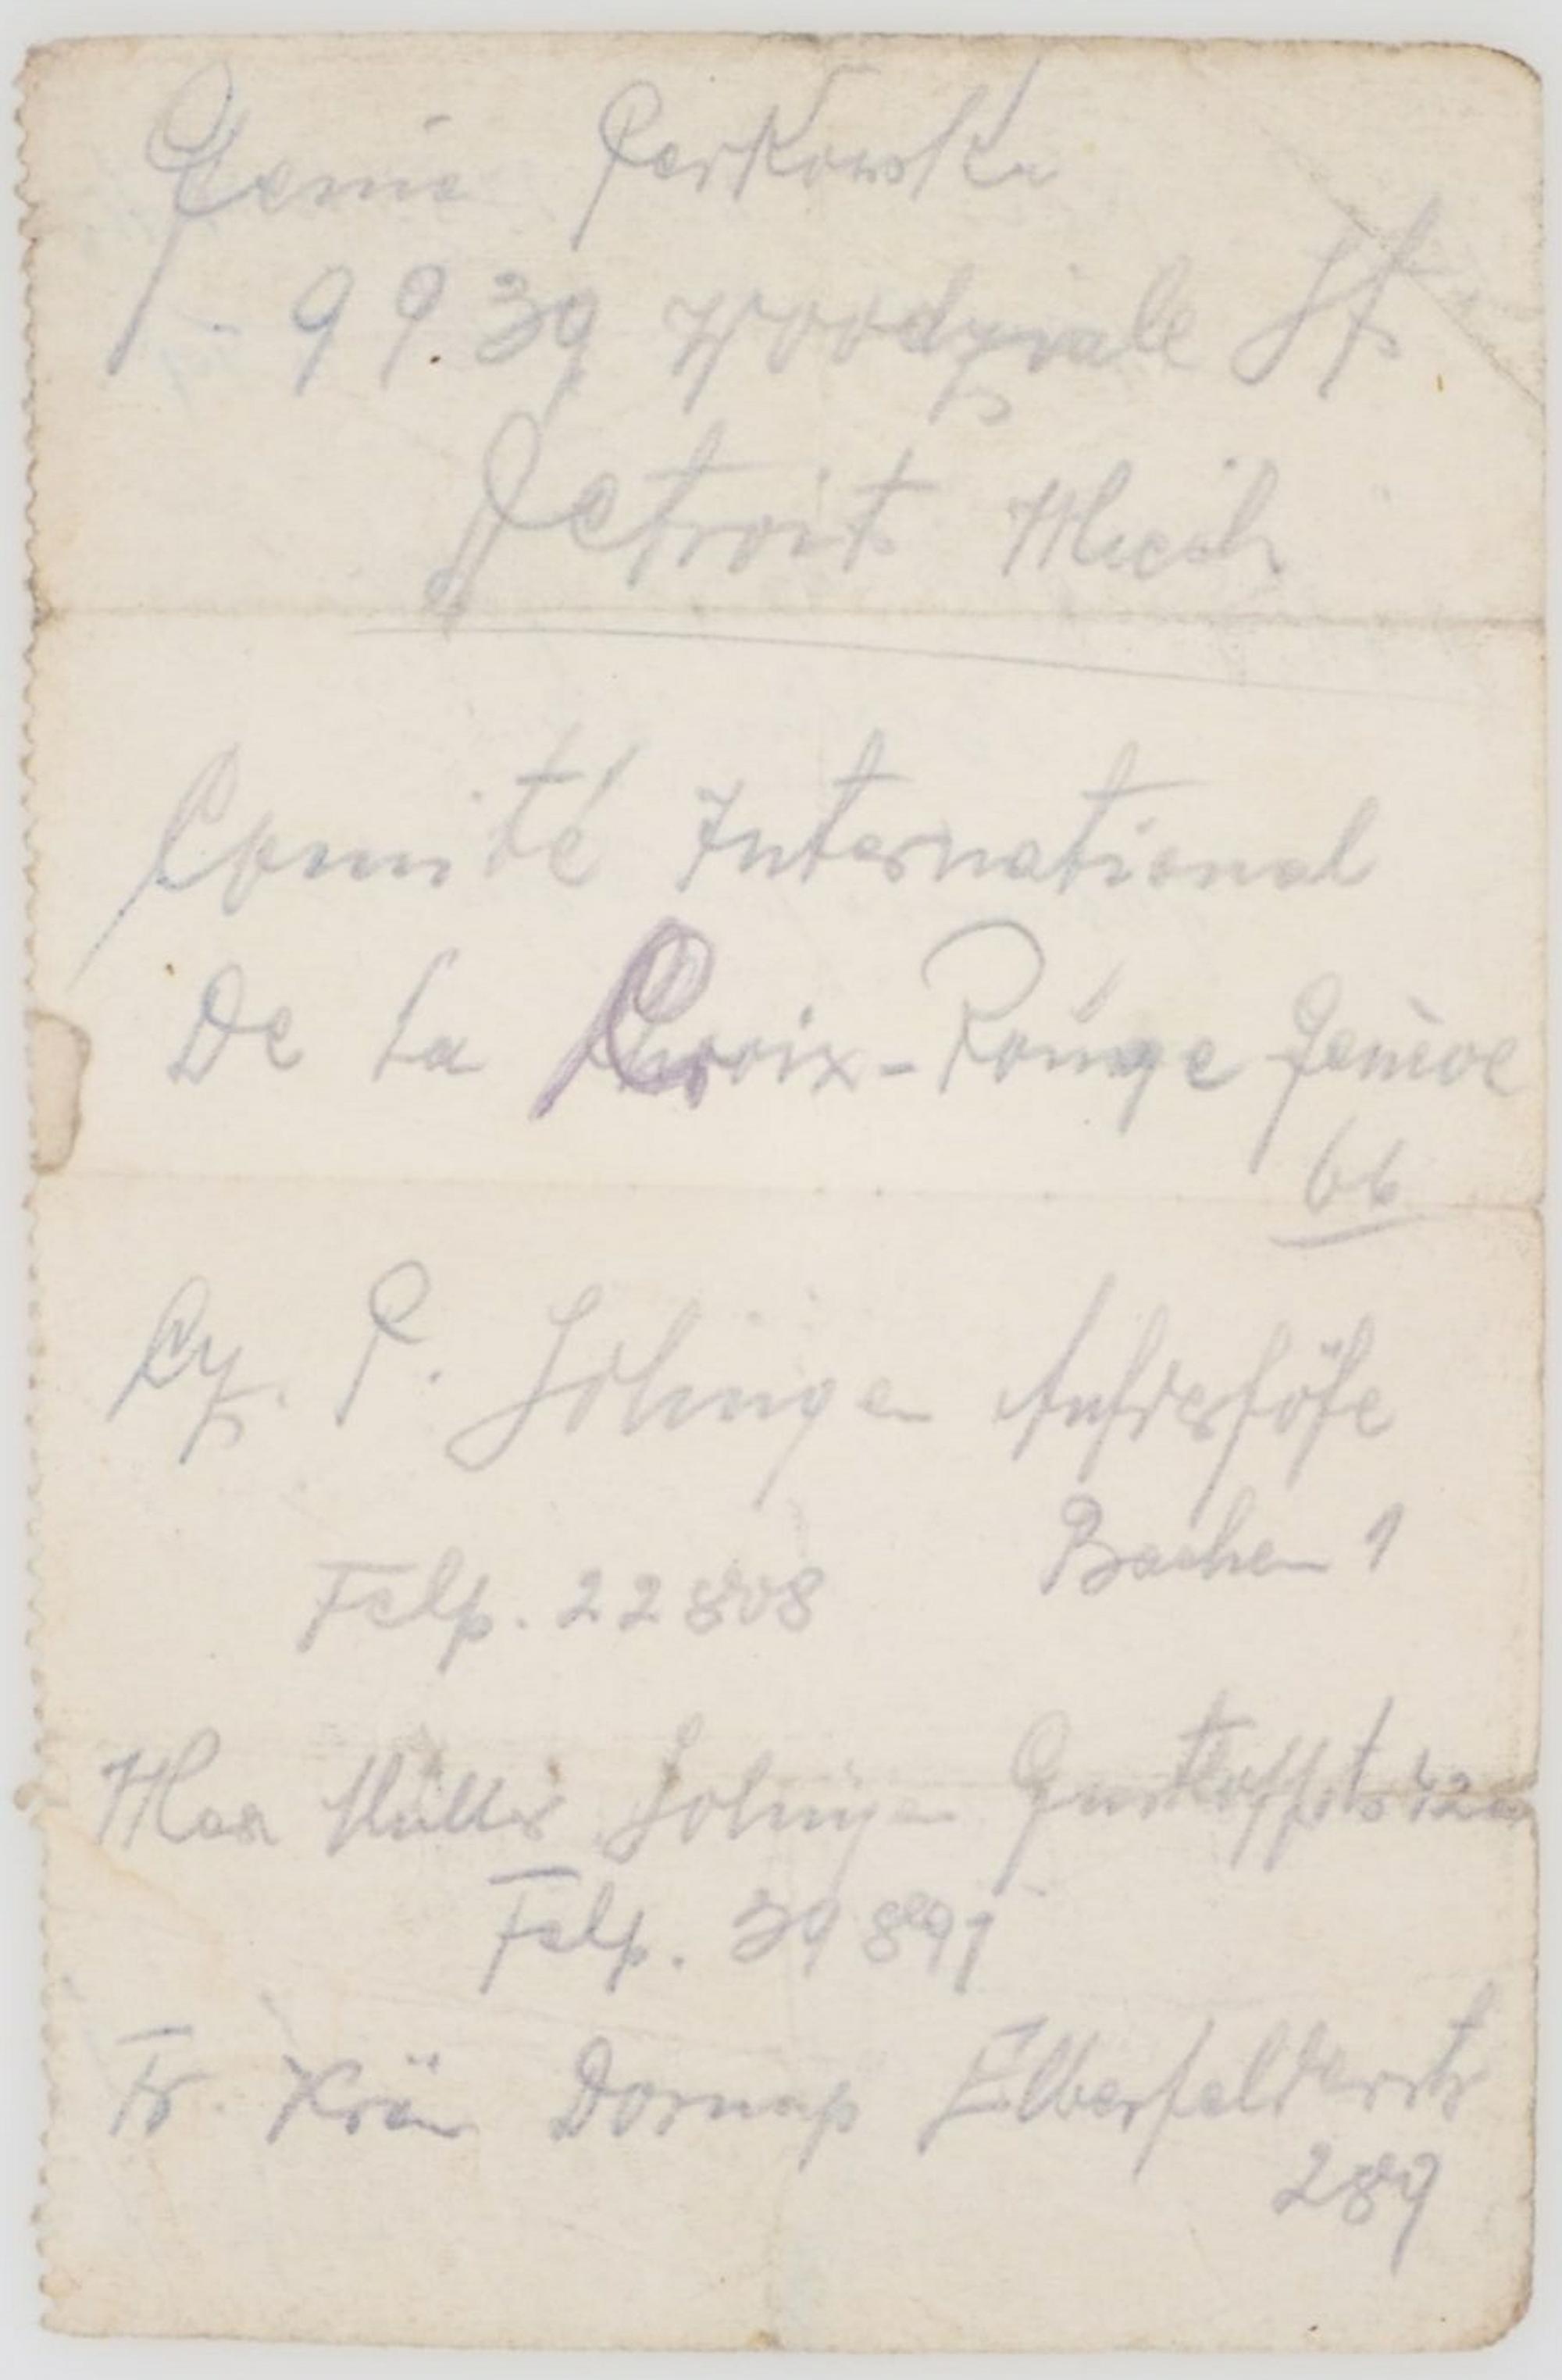 Genia Perkowska
9939 Woodzvale St.
Detroit Mich
Comité International
De La Croix-Rouge Genève
66
Cz. P. Solingen Aufderhöhe
Bachen 1
Felp. 22808
Max Müller Solingen Gustloffstr 42a
Felp. 39891
Fr. Krän Dornap Elberfelderstr
289